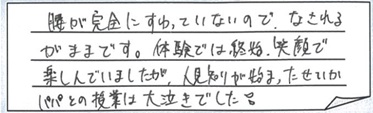 腰が完全にすわっていないので、なされる
がままです。体験では終始、笑顔で
楽しんでいましたが、人見知りが始まったせいか
パパとの授業は大泣きでした。